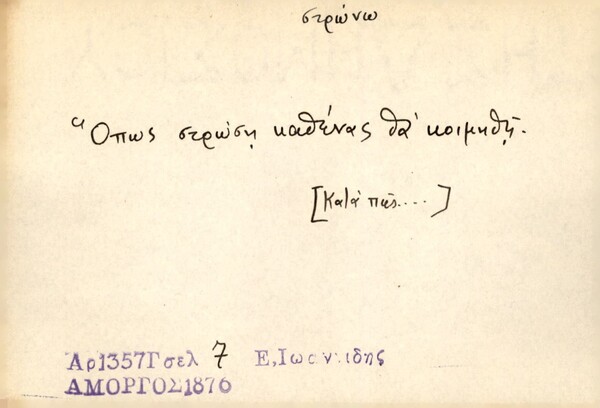 στρώνω
Ὅπως στρώσῃ καθένας θὰ κοιμηθῇ.
[Κατὰ πῶς....]
Ἀρ1357Γσελ 7 Ε,Ιωαννιδης
ΑΜΟΡΓΟΣ1876